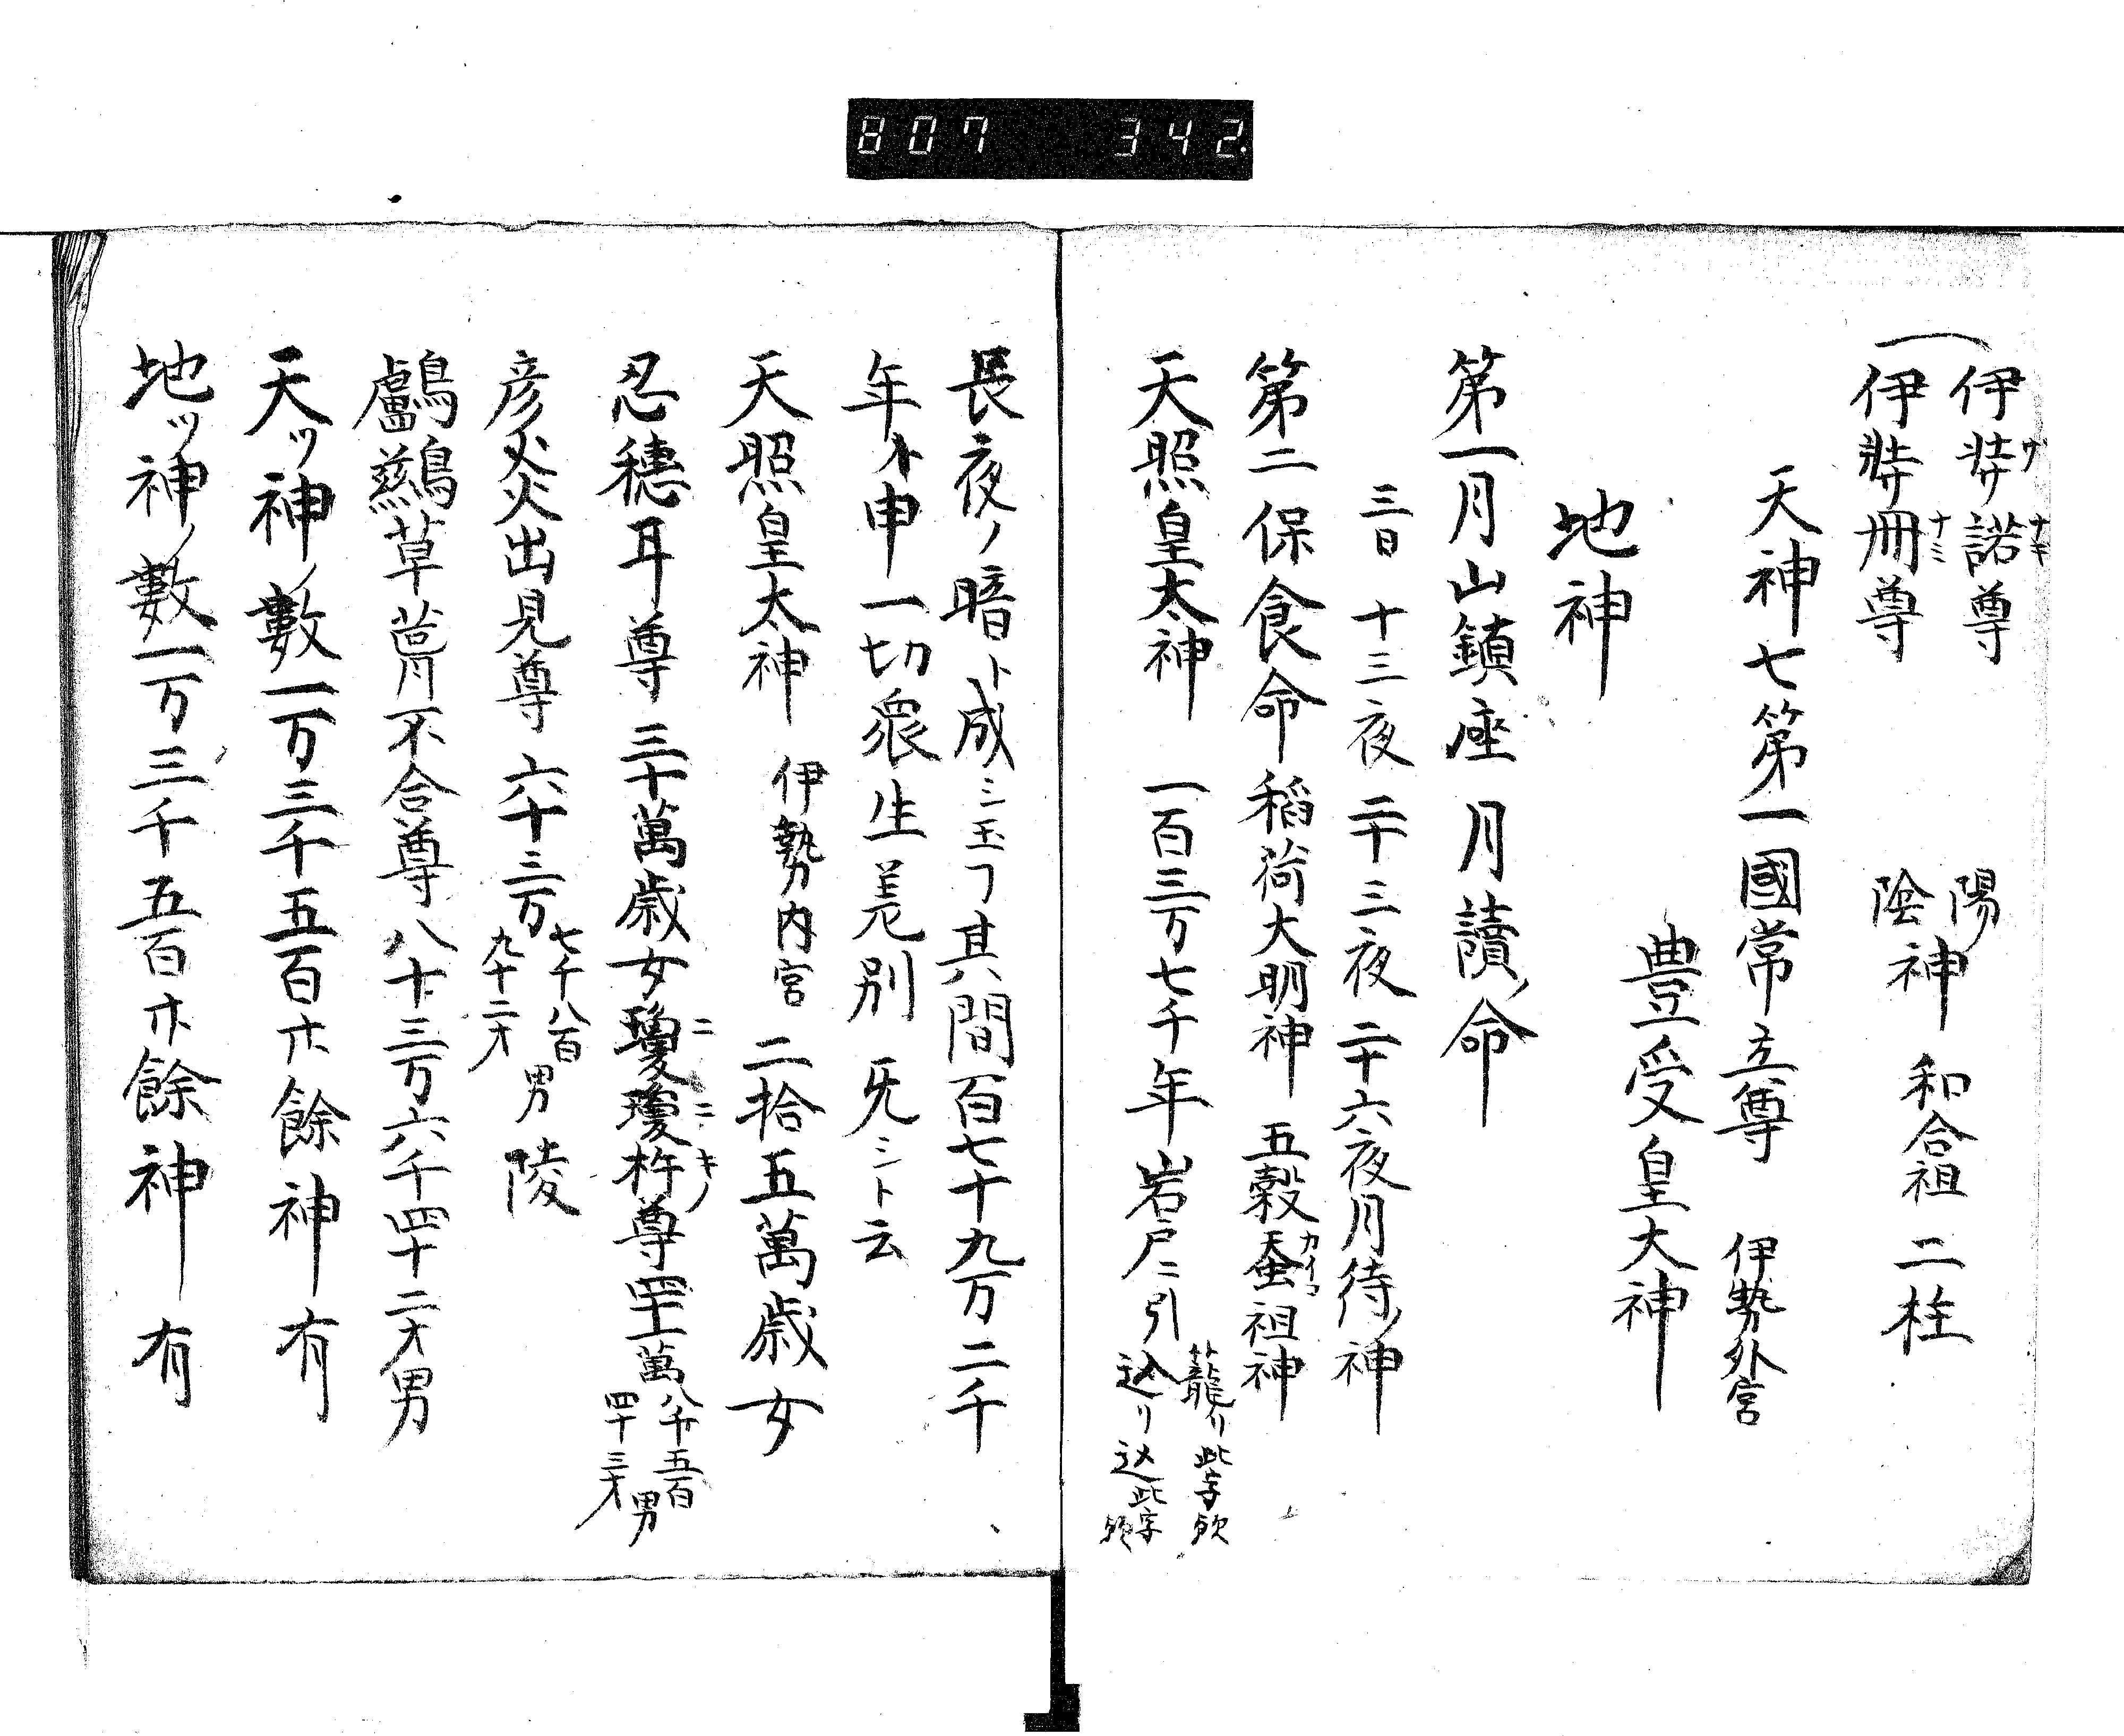 807 342
伊弉諾尊 陽
伊弉冊尊 陰神 和合祖 二柱
天神七第一國常立尊 伊勢外宮
豊受皇大神
地神
第一月山鎮座 月讀ノ命
三日 十三夜 二十三夜 二十六夜月待ノ神
第二保食命 稻荷大明神 五穀蚕祖神
天照皇太神 一百三万七千年 岩戸ニ引 籠リ此字欤
込リ 込此字欤
長夜ノ暗ト成シ玉フ其間百七十九万二千
年ト申一切衆生差別旡シト云
天照皇太神 伊勢内宮 二拾五萬歳女
忍穂耳尊三十萬歳女瓊瓊杵尊四十一萬八千五百
四十三才 男
彦炎火出見尊 六十三万七千八百
九十二才 男 陵
鸕鷀草葺不合尊八十三万六千四十二才男
天ツ神ノ數一万三千五百廾餘神有
地ツ神ノ數一万三千五百廾餘神有